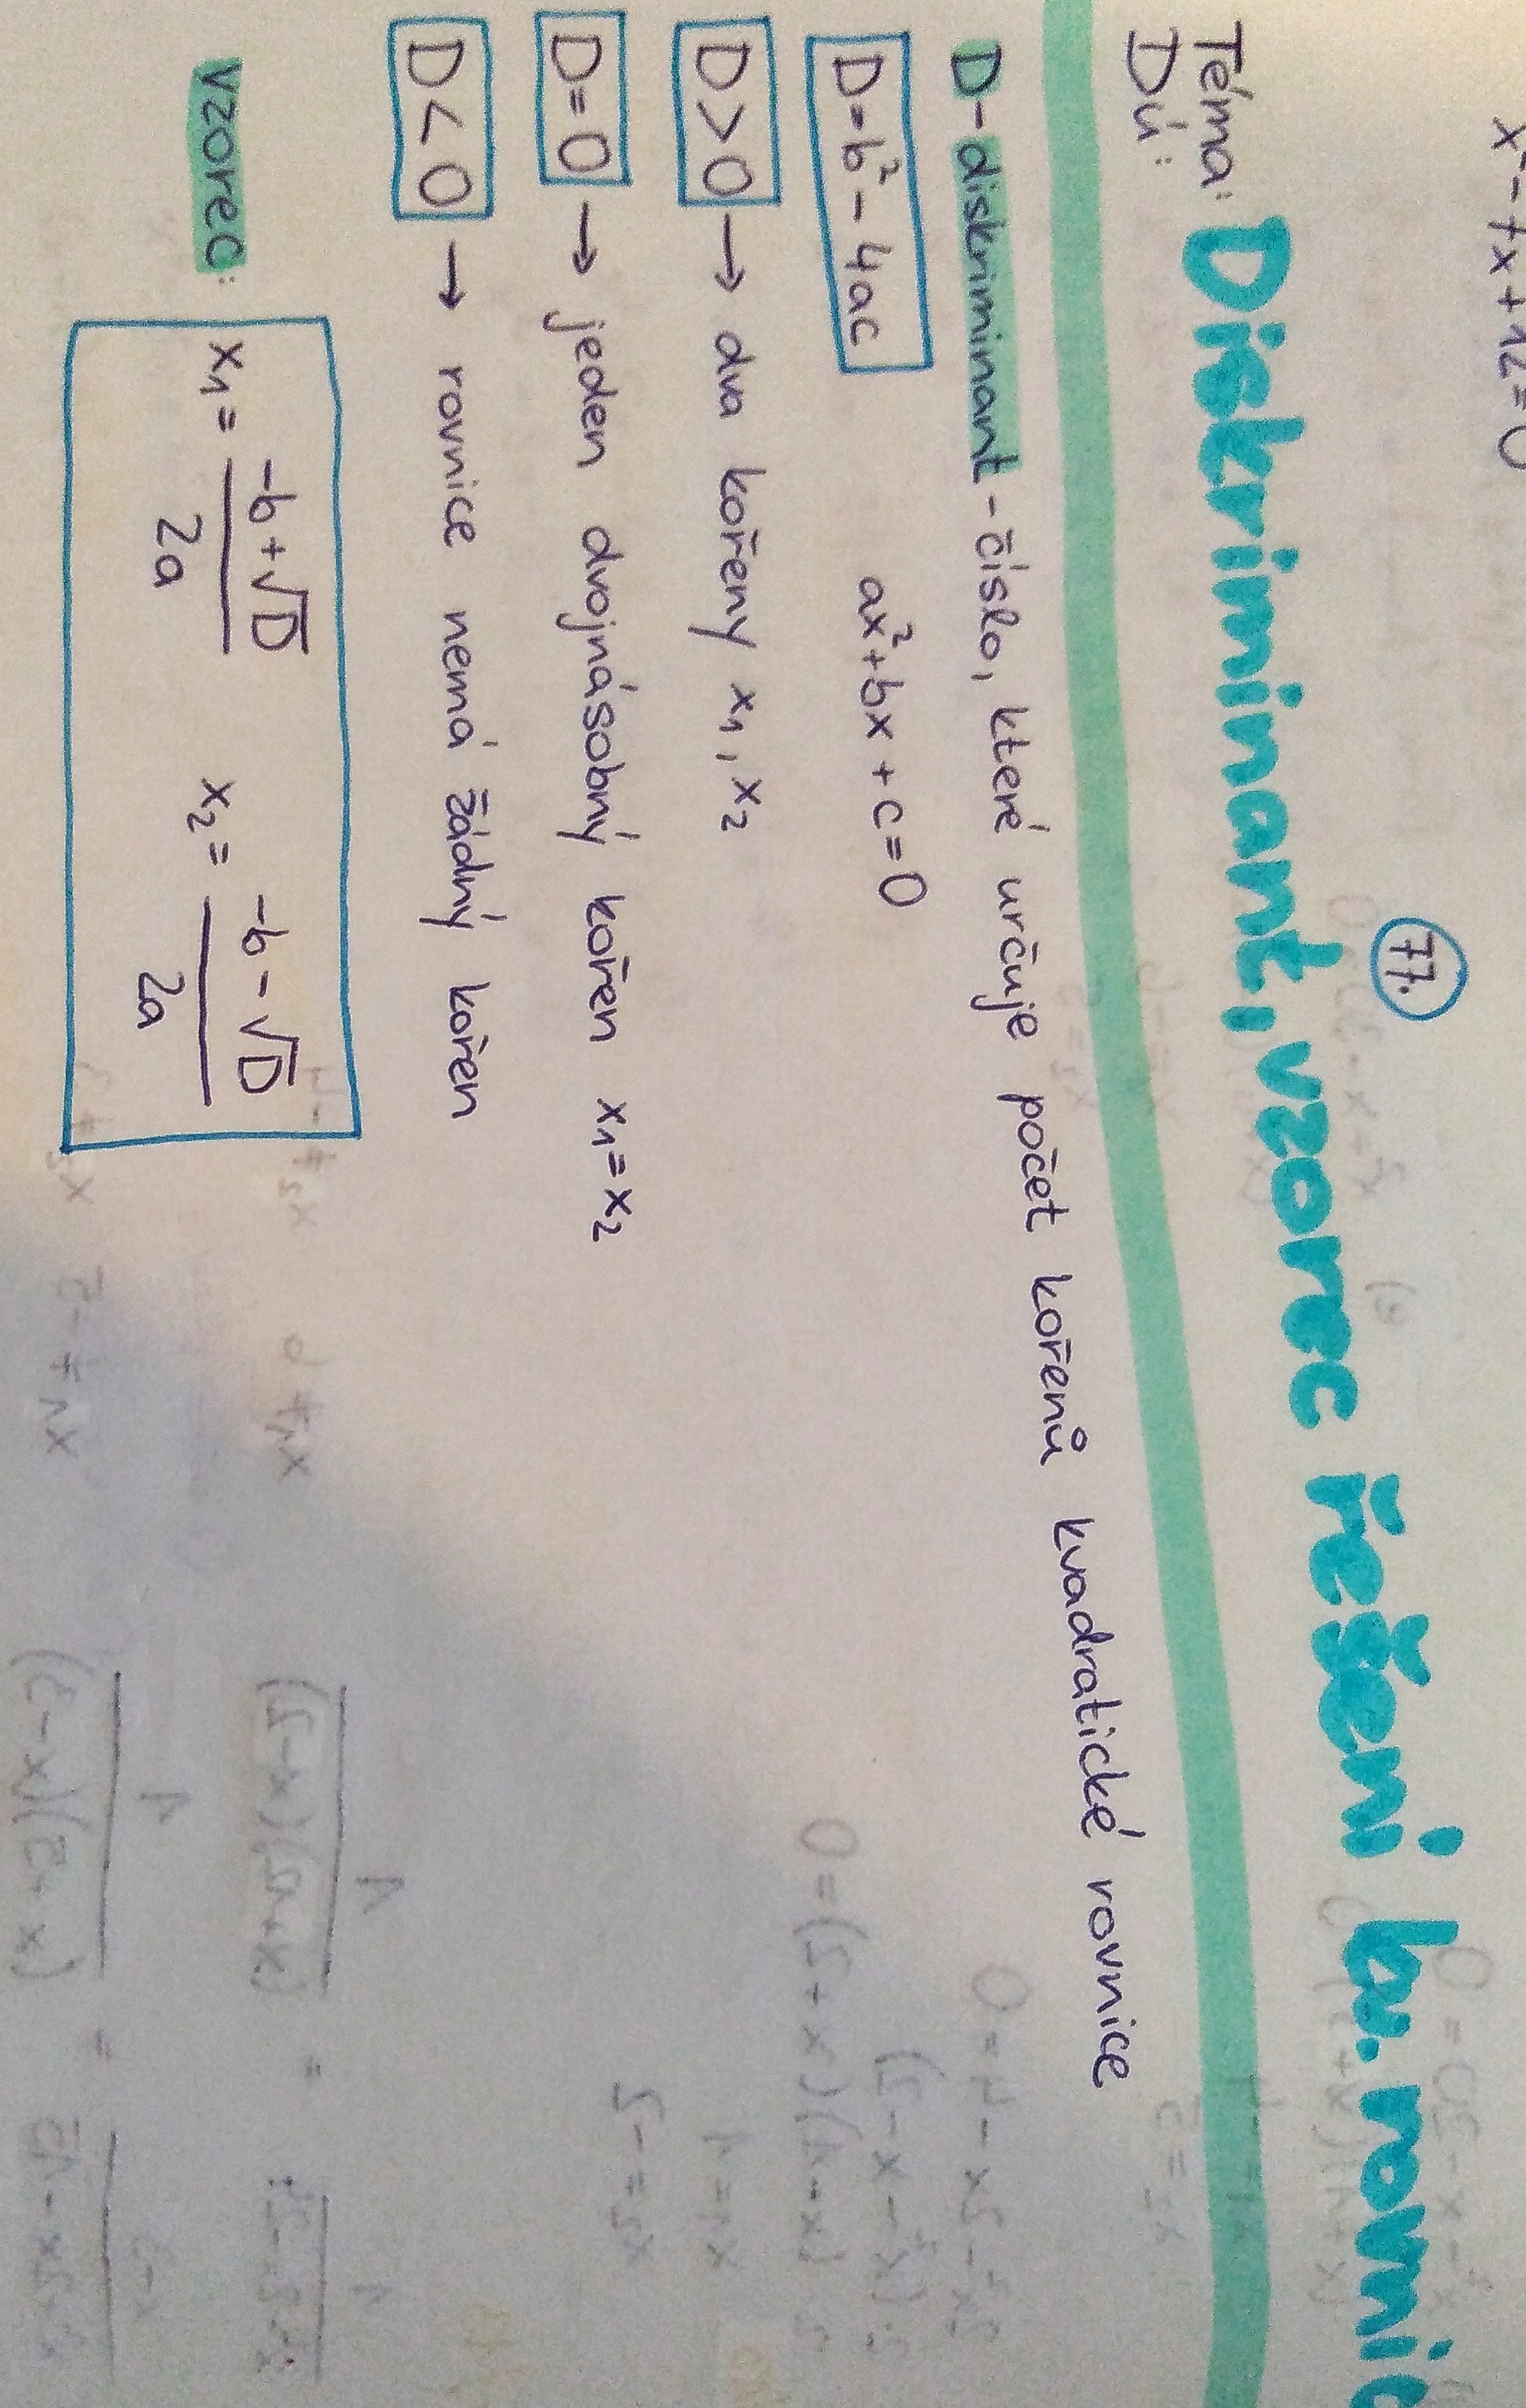 77.
Téma: Diskriminant, vzorec řešení kv. rovnic
Dú:
D-diskriminant - číslo, které určuje počet kořenů kvadratické rovnice
D=b²-4ac ax²+bx+c=0
D>0 → dva kořeny x₁, x₂
D=0 → jeden dvojnásobný kořen x₁=x₂
D<0 → rovnice nemá žádný kořen
vzorec: x₁ = (-b+√D)/2a x₂ = (-b-√D)/2a